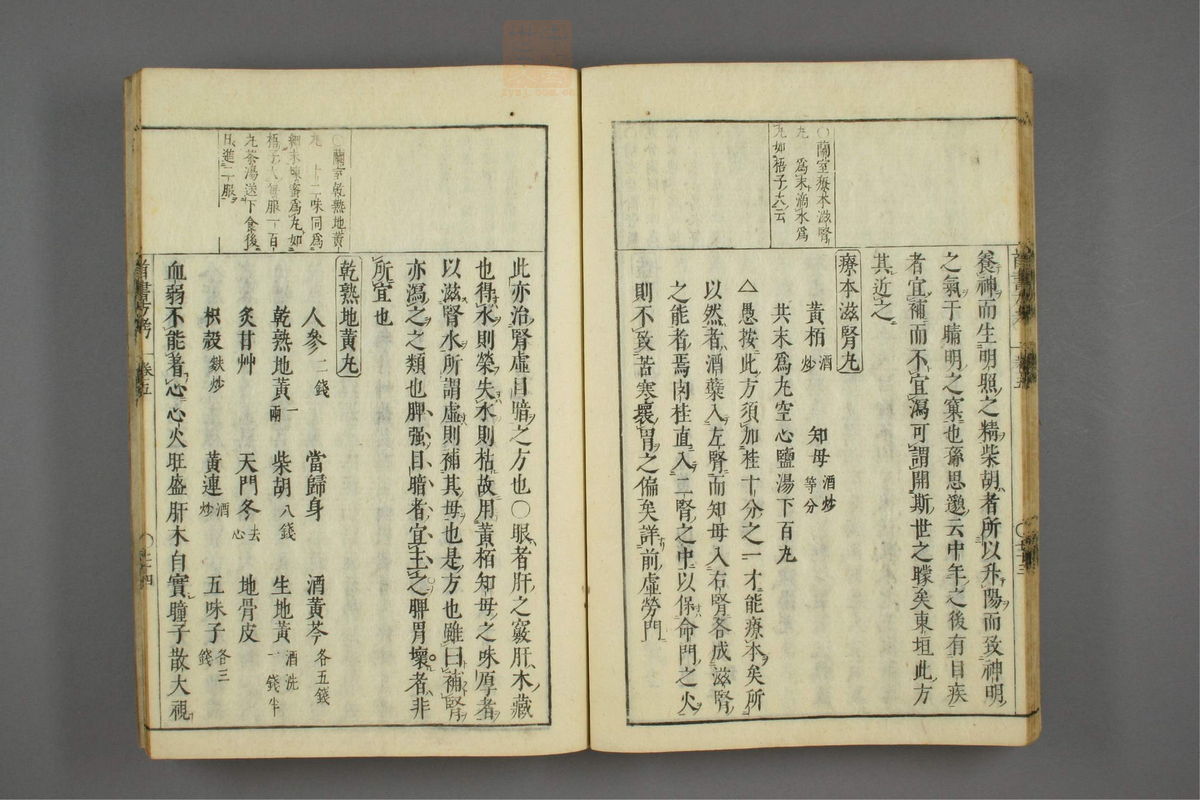 ○蘭室療本滋腎
丸 爲末滴水爲
丸如梧子大云
養神而生明照之精柴胡者所以升陽而致神明
之氣于睛明之窠也孫思邈云中年之後有目疾
者宜補而不宜瀉可謂開斯世之矇矣東垣此方
其近之
療本滋腎丸
黃栢 酒炒 知母 酒炒等分
共末爲丸空心鹽湯下百丸
△愚按此方須加桂十分之一才能療本矣所
以然者酒蘗入左腎而知母入右腎各成滋腎
之能者焉肉桂直入二腎之中以保命門之火
則不致苦寒壞胃之偏矣詳前虛勞門
○蘭室乾熟地黃
丸 十二味同爲
細末煉蜜爲丸如
梧子大每服一百
丸茶湯送下食後
日進二服
此亦治腎虛目暗之方也○眼者肝之竅肝木藏
也得水則榮失水則枯故用黃栢知母之味厚者
以滋腎水所謂虛則補其母也是方也雖曰補腎
亦瀉之之類也脾强目暗者宜主之脾胃壞者非
所宜也
乾熟地黃丸
人參 二錢 當歸身 酒黃芩 各五錢
乾熟地黃 一兩 柴胡 八錢 生地黃 酒洗一錢半
炙甘艸 天門冬 去心 地骨皮
枳殼 麩炒 黃連 酒炒 五味子 各三錢
血弱不能著心心火旺盛肝木自實瞳子散大視